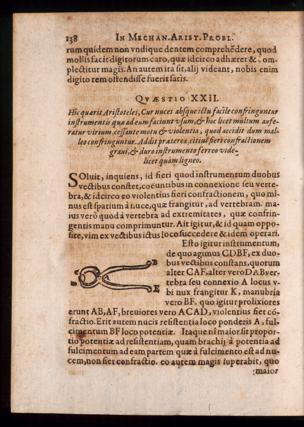 138 IN MECHAN. ARIST. PROBL.
rum quidem non vndique dentem comprehẽdere, quod
mollis facit digitorum caro, quæ idcirco adhæret &
plectitur magis. An autem ita sit, alij videant, nobis enim
digito rem ostendisse fuerit satis.
QVÆSTIO XXII.
Hic quærit Aristoteles, Cur nuces absque ictu facile confringuntur
instrumentis quæ ad eum fiunt vsum, & hoc licet multum aufe-
ratur virium, cessante motu & violentia, quod accidit dum mal-
leo confringuntur. Addit præterea, citius fieri confractionem
graui, & duro instrumento ferreo vide-
licet quàm ligneo.
Soluit, inquiens, id fieri quod instrumentum duobus
vectibus constet, coëuntibus in connexione seu verte-
bra, & idcirco eo violentius fieri confractionem, quo mi-
nus est spatium à nuce, quæ frangitur, ad vertebram. ma-
ius verò quod à vertebra ad extremitates, quæ confrin-
gentis manu comprimuntur. Ait igitur, & id quam oppo-
site, vim ex vectibus ictus loco succedere & idem operari.
Esto igitur instrumentum,
de quo agimus CDBF, ex du-
obus vectibus constans, quorum
alter CAF, alter vero DAB ver-
tebra seu connexio A locus v-
bi nux frangitur K, manubria
vero BF. quo igitur prolixiores
erunt AB, AF, breuiores vero AC AD, violentius fiet cõ-
fractio. Erit autem nucis resistentia loco ponderis A, ful-
cimentum BF loco potentiæ. Itaque nisi maior sit propor-
tio potentiæ ad resistentiam, quam brachij à potentia ad
fulcimentum ad eam partem quæ à fulcimento est ad nu-
cem, non fiet confractio. eo autem magis superabit, quo
maior